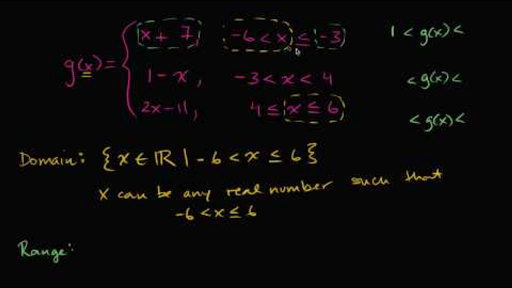 x + 7, -6 < x ≤ -3 1 < g(x) <
g(x) = { 1 - x, -3 < x < 4 < g(x) <
2x - 11, 4 ≤ x ≤ 6 < g(x) <
Domain: {x ∈ ℝ | -6 < x ≤ 6}
x can be any real number such that
-6 < x ≤ 6
Range: